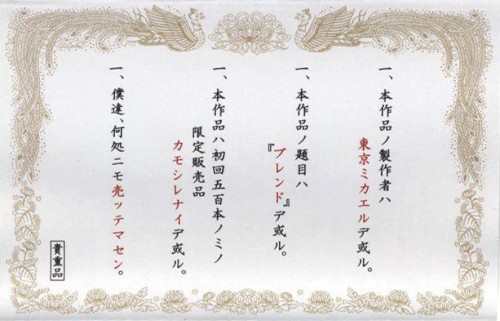 一、本作品ノ製作者ハ
東京ミカエルデ或ル。
一、本作品ノ題目ハ
『ブレンド』デ或ル。
一、本作品ハ初回五百本ノミノ
限定販売品
カモシレナイデ或ル。
一、僕達、何処ニモ売ッテマセン。
貴重品